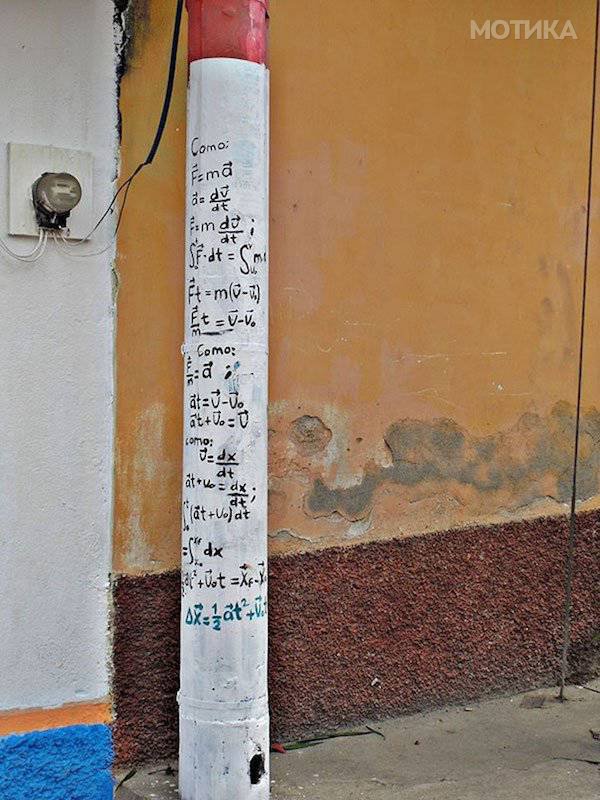 МОТИКА
Como:
F⃗=ma⃗
a⃗=dv⃗/dt
F⃗=m dv⃗/dt ;
∫F⃗·dt = ∫ m
F⃗t = m(v⃗-v⃗₀)
F⃗t/m = v⃗-v⃗₀
Como:
F⃗/m=a⃗ ;
a⃗t=v⃗-v⃗₀
a⃗t+v⃗₀=v⃗
como:
v⃗=dx⃗/dt
a⃗t+v₀=dx⃗/dt;
∫(a⃗t+v⃗₀)dt
=∫dx
a⃗t²+v⃗₀t=x⃗F-x⃗
Δx⃗=½a⃗t²+v⃗₀